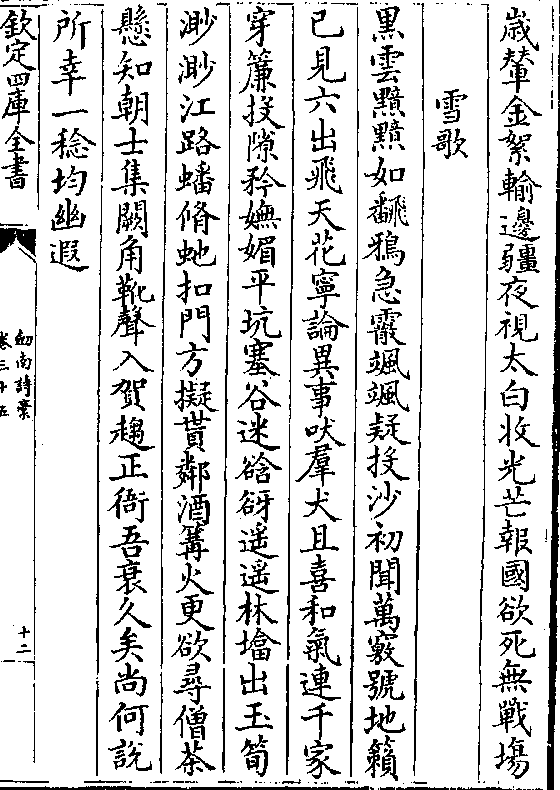 歲輦金絮輸邊疆夜視太白收光芒報國欲死無戰塲
雪歌
黑雲黯黯如翻鴉急霰颯颯疑投沙初聞萬竅號地籟
已見六出飛天花寧論異事吠羣犬且喜和氣連千家
穿簾投隙矜嫵媚平坑塞谷迷谽谺遥遥林㙮出玉筍
渺渺江路蟠脩虵扣門方擬貰鄰酒篝火更欲尋僧茶
懸知朝士集闕角靴聲入賀趨正衙吾衰久矣尚何說
所幸一稔均幽遐
欽定四庫全書
劔南詩藁
卷三十五
十二